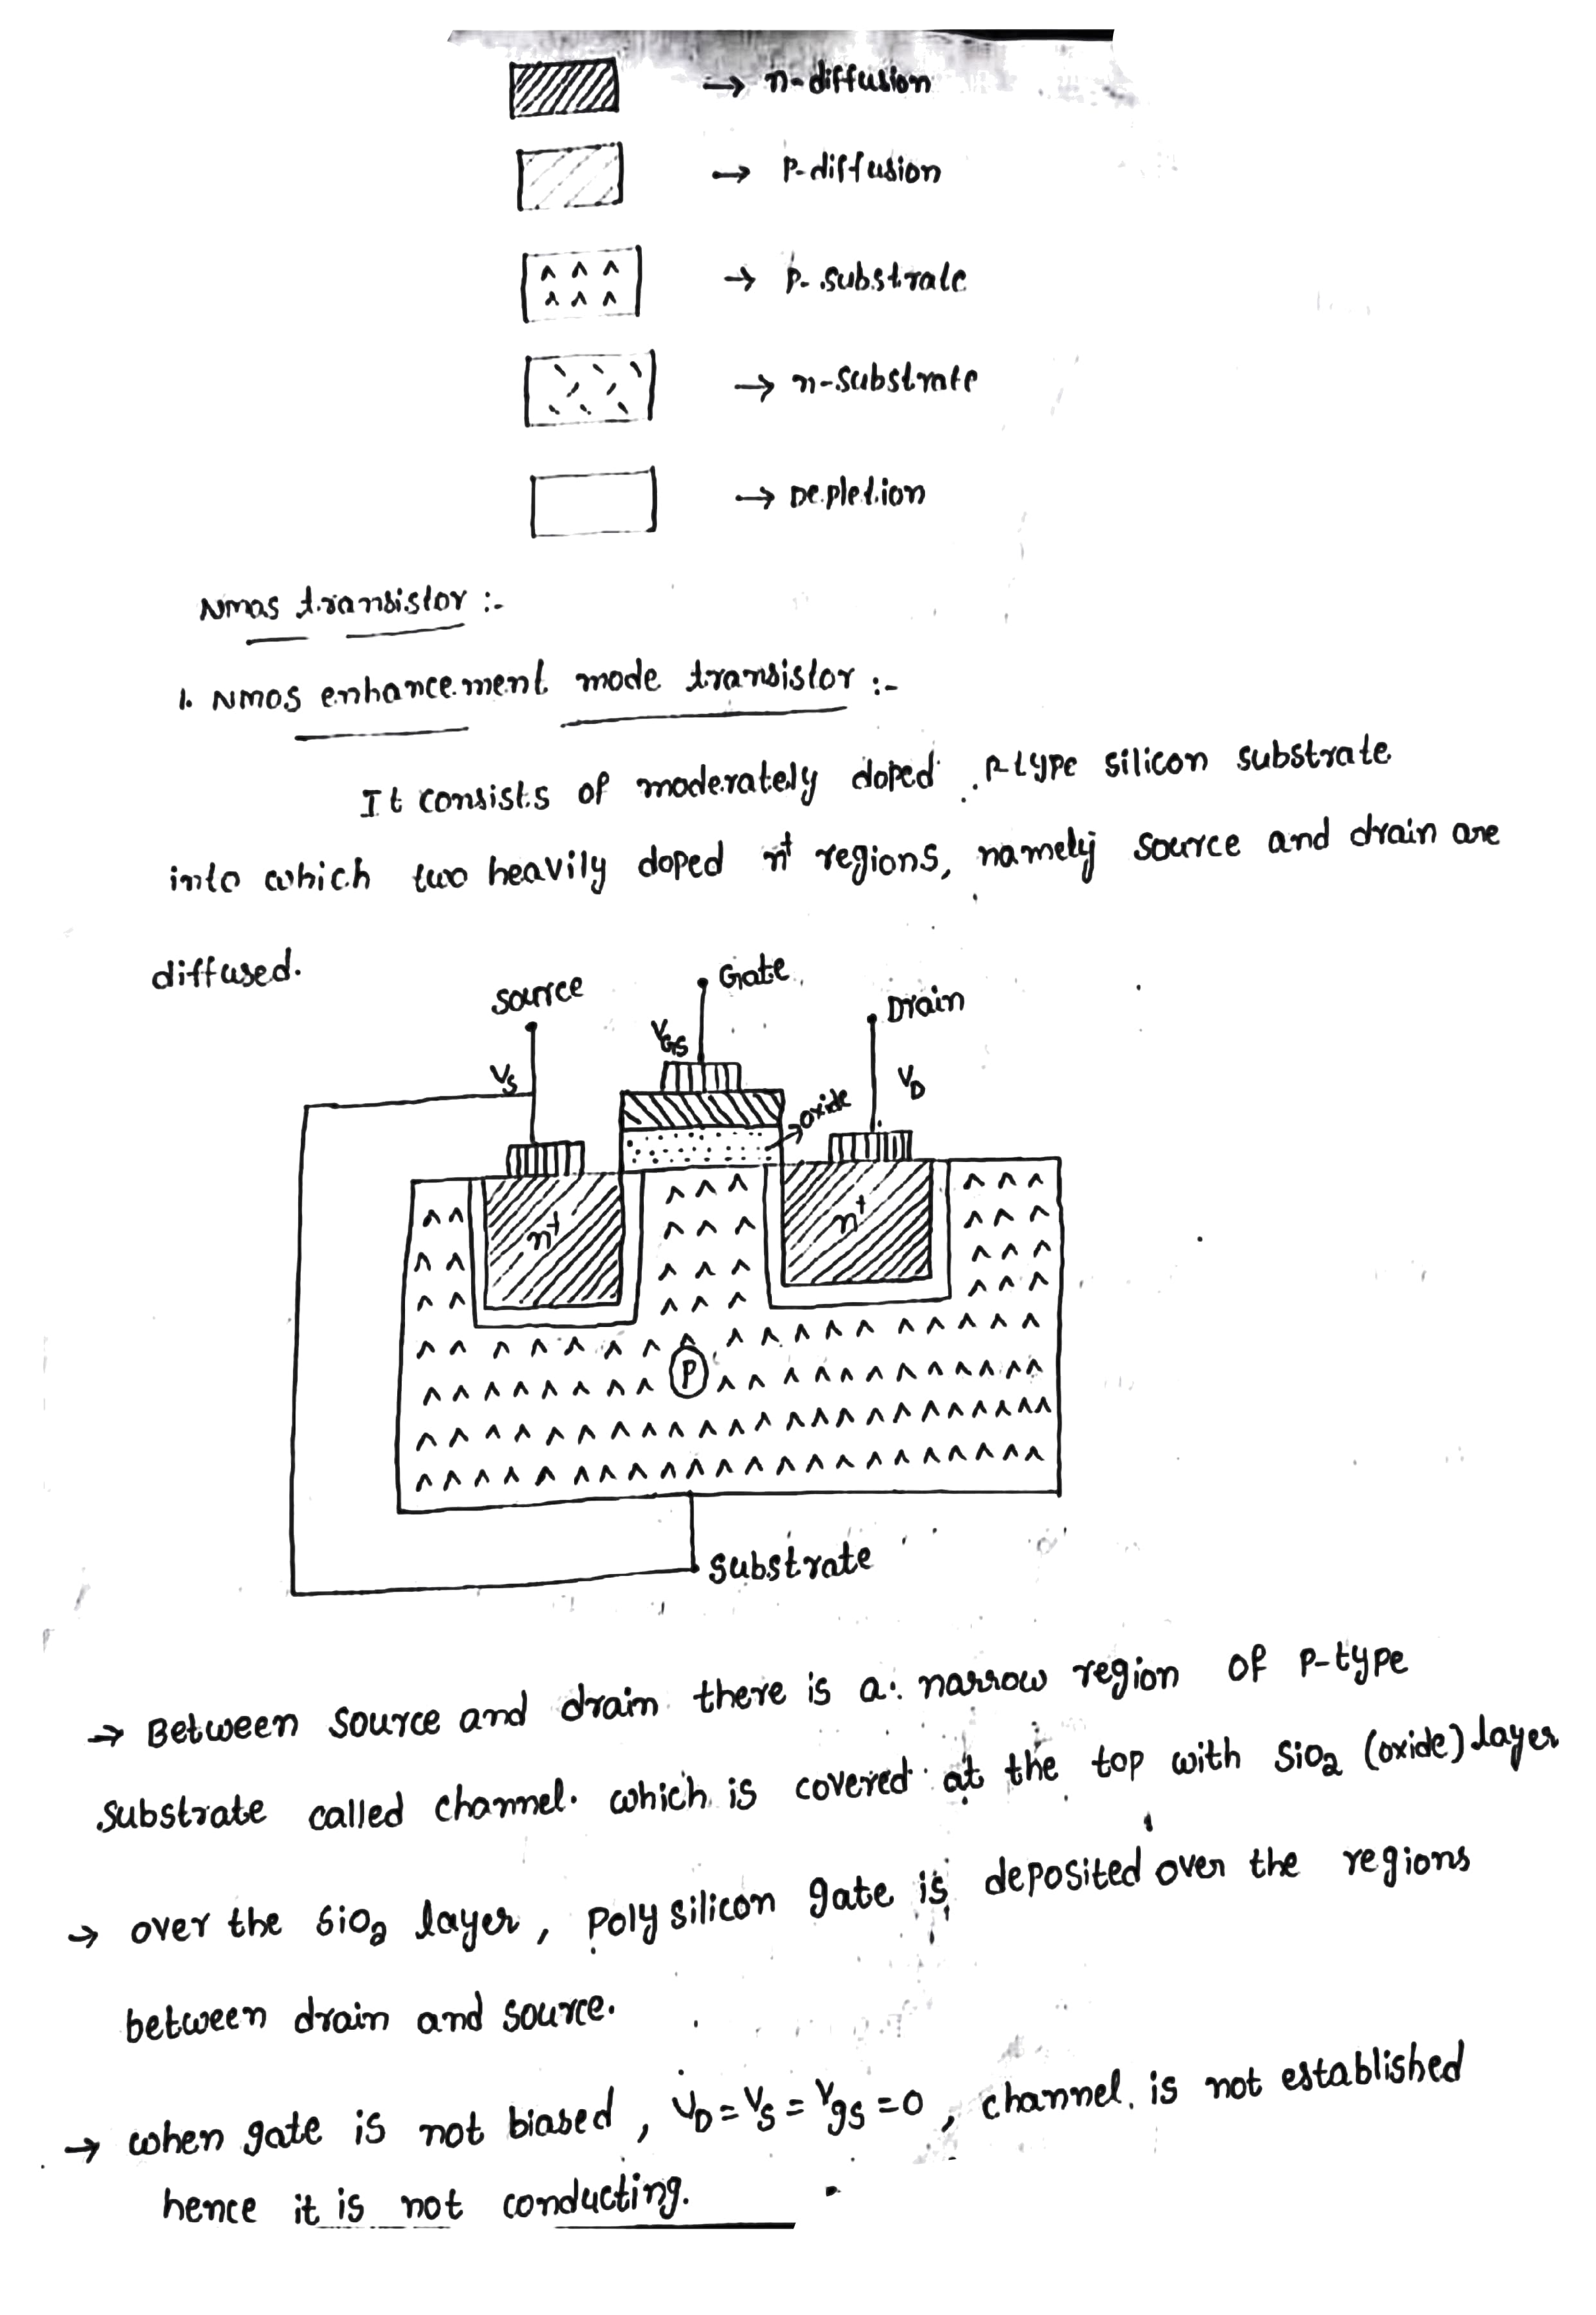 → n-diffusion
→ P-diffusion
→ P-substrate
→ n-substrate
→ Depletion
Nmos transistor :-
1. NMOS enhancement mode transistor :-
It consists of moderately doped P-type silicon substrate
into which two heavily doped n⁺ regions, namely source and drain are
diffused.
Source
Gate
Drain
VS
VGS
VD
oxide
n⁺
n⁺
P
Substrate
→ Between source and drain there is a narrow region of P-type
substrate called channel. which is covered at the top with SiO2 (oxide) layer
→ over the SiO2 layer, Poly silicon gate is deposited over the regions
between drain and source.
→ when gate is not biased, VD = VS = Vgs = 0, channel is not established
hence it is not conducting.